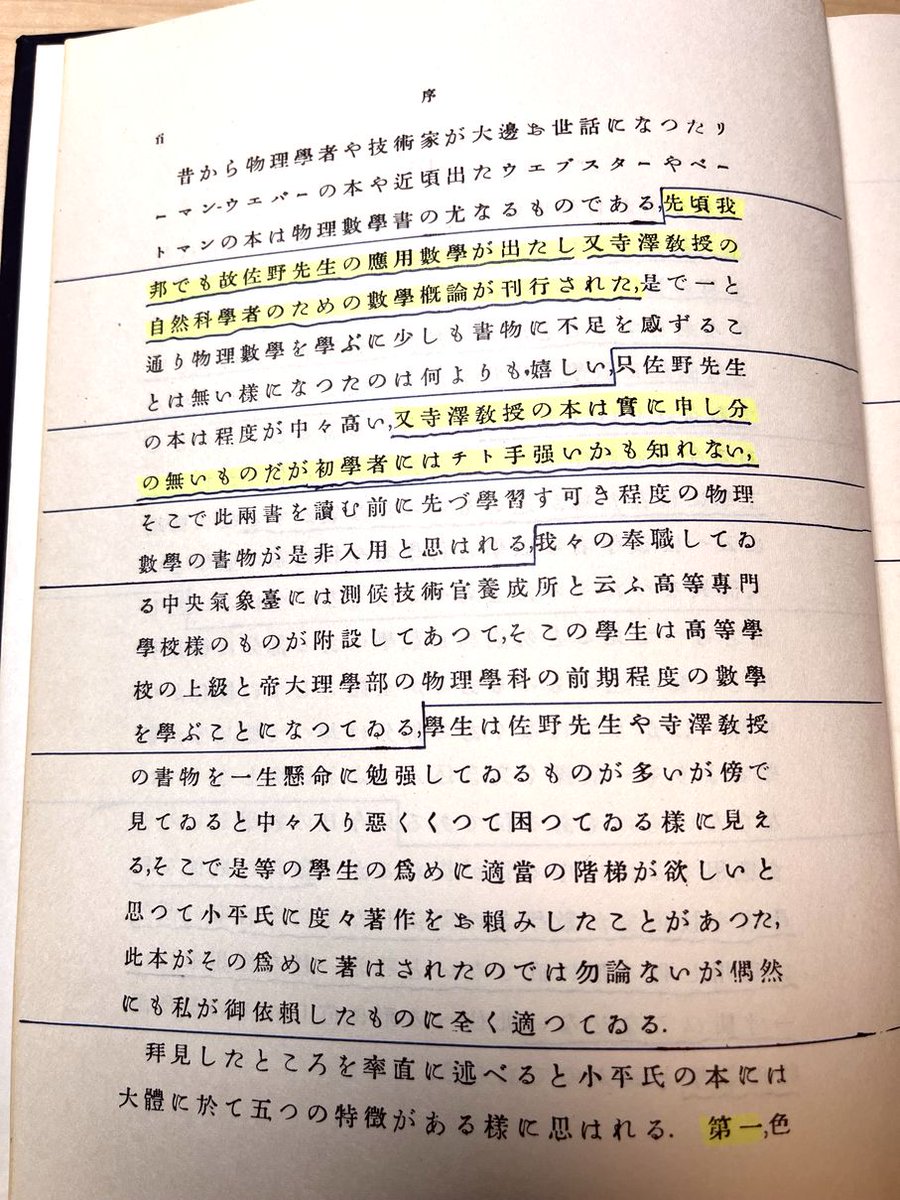 序
ii
昔から物理學者や技術家が大邊お世話になつたリ
ーマン-ウエバーの本や近頃出たウエブスターやベー
トマンの本は物理數學書の尤なるものである,先頃我
邦でも故佐野先生の應用數學が出たし又寺澤敎授の
自然科學者のための數學槪論が刊行された,是で一と
通り物理數學を學ぶに少しも書物に不足を感ずるこ
とは無い樣になつたのは何よりも,嬉しい,只佐野先生
の本は程度が中々高い,又寺澤敎授の本は實に申し分
の無いものだが初學者にはチト手强いかも知れない,
そこで此兩書を讀む前に先づ學習す可き程度の物理
數學の書物が是非入用と思はれる,我々の奉職してゐ
る中央氣象臺には測候技術官養成所と云ふ高等專門
學校樣のものが附設してあつて,そこの學生は高等學
校の上級と帝大理學部の物理學科の前期程度の數學
を學ぶことになつてゐる,學生は佐野先生や寺澤敎授
の書物を一生懸命に勉强してゐるものが多いが傍で
見てゐると中々入り惡くくつて困つてゐる樣に見え
る,そこで是等の學生の爲めに適當の階梯が欲しいと
思つて小平氏に度々著作をお賴みしたことがあつた,
此本がその爲めに著はされたのでは勿論ないが偶然
にも私が御依賴したものに全く適つてゐる.
拜見したところを率直に述べると小平氏の本には
大體に於て五つの特徵がある樣に思はれる. 第一,色